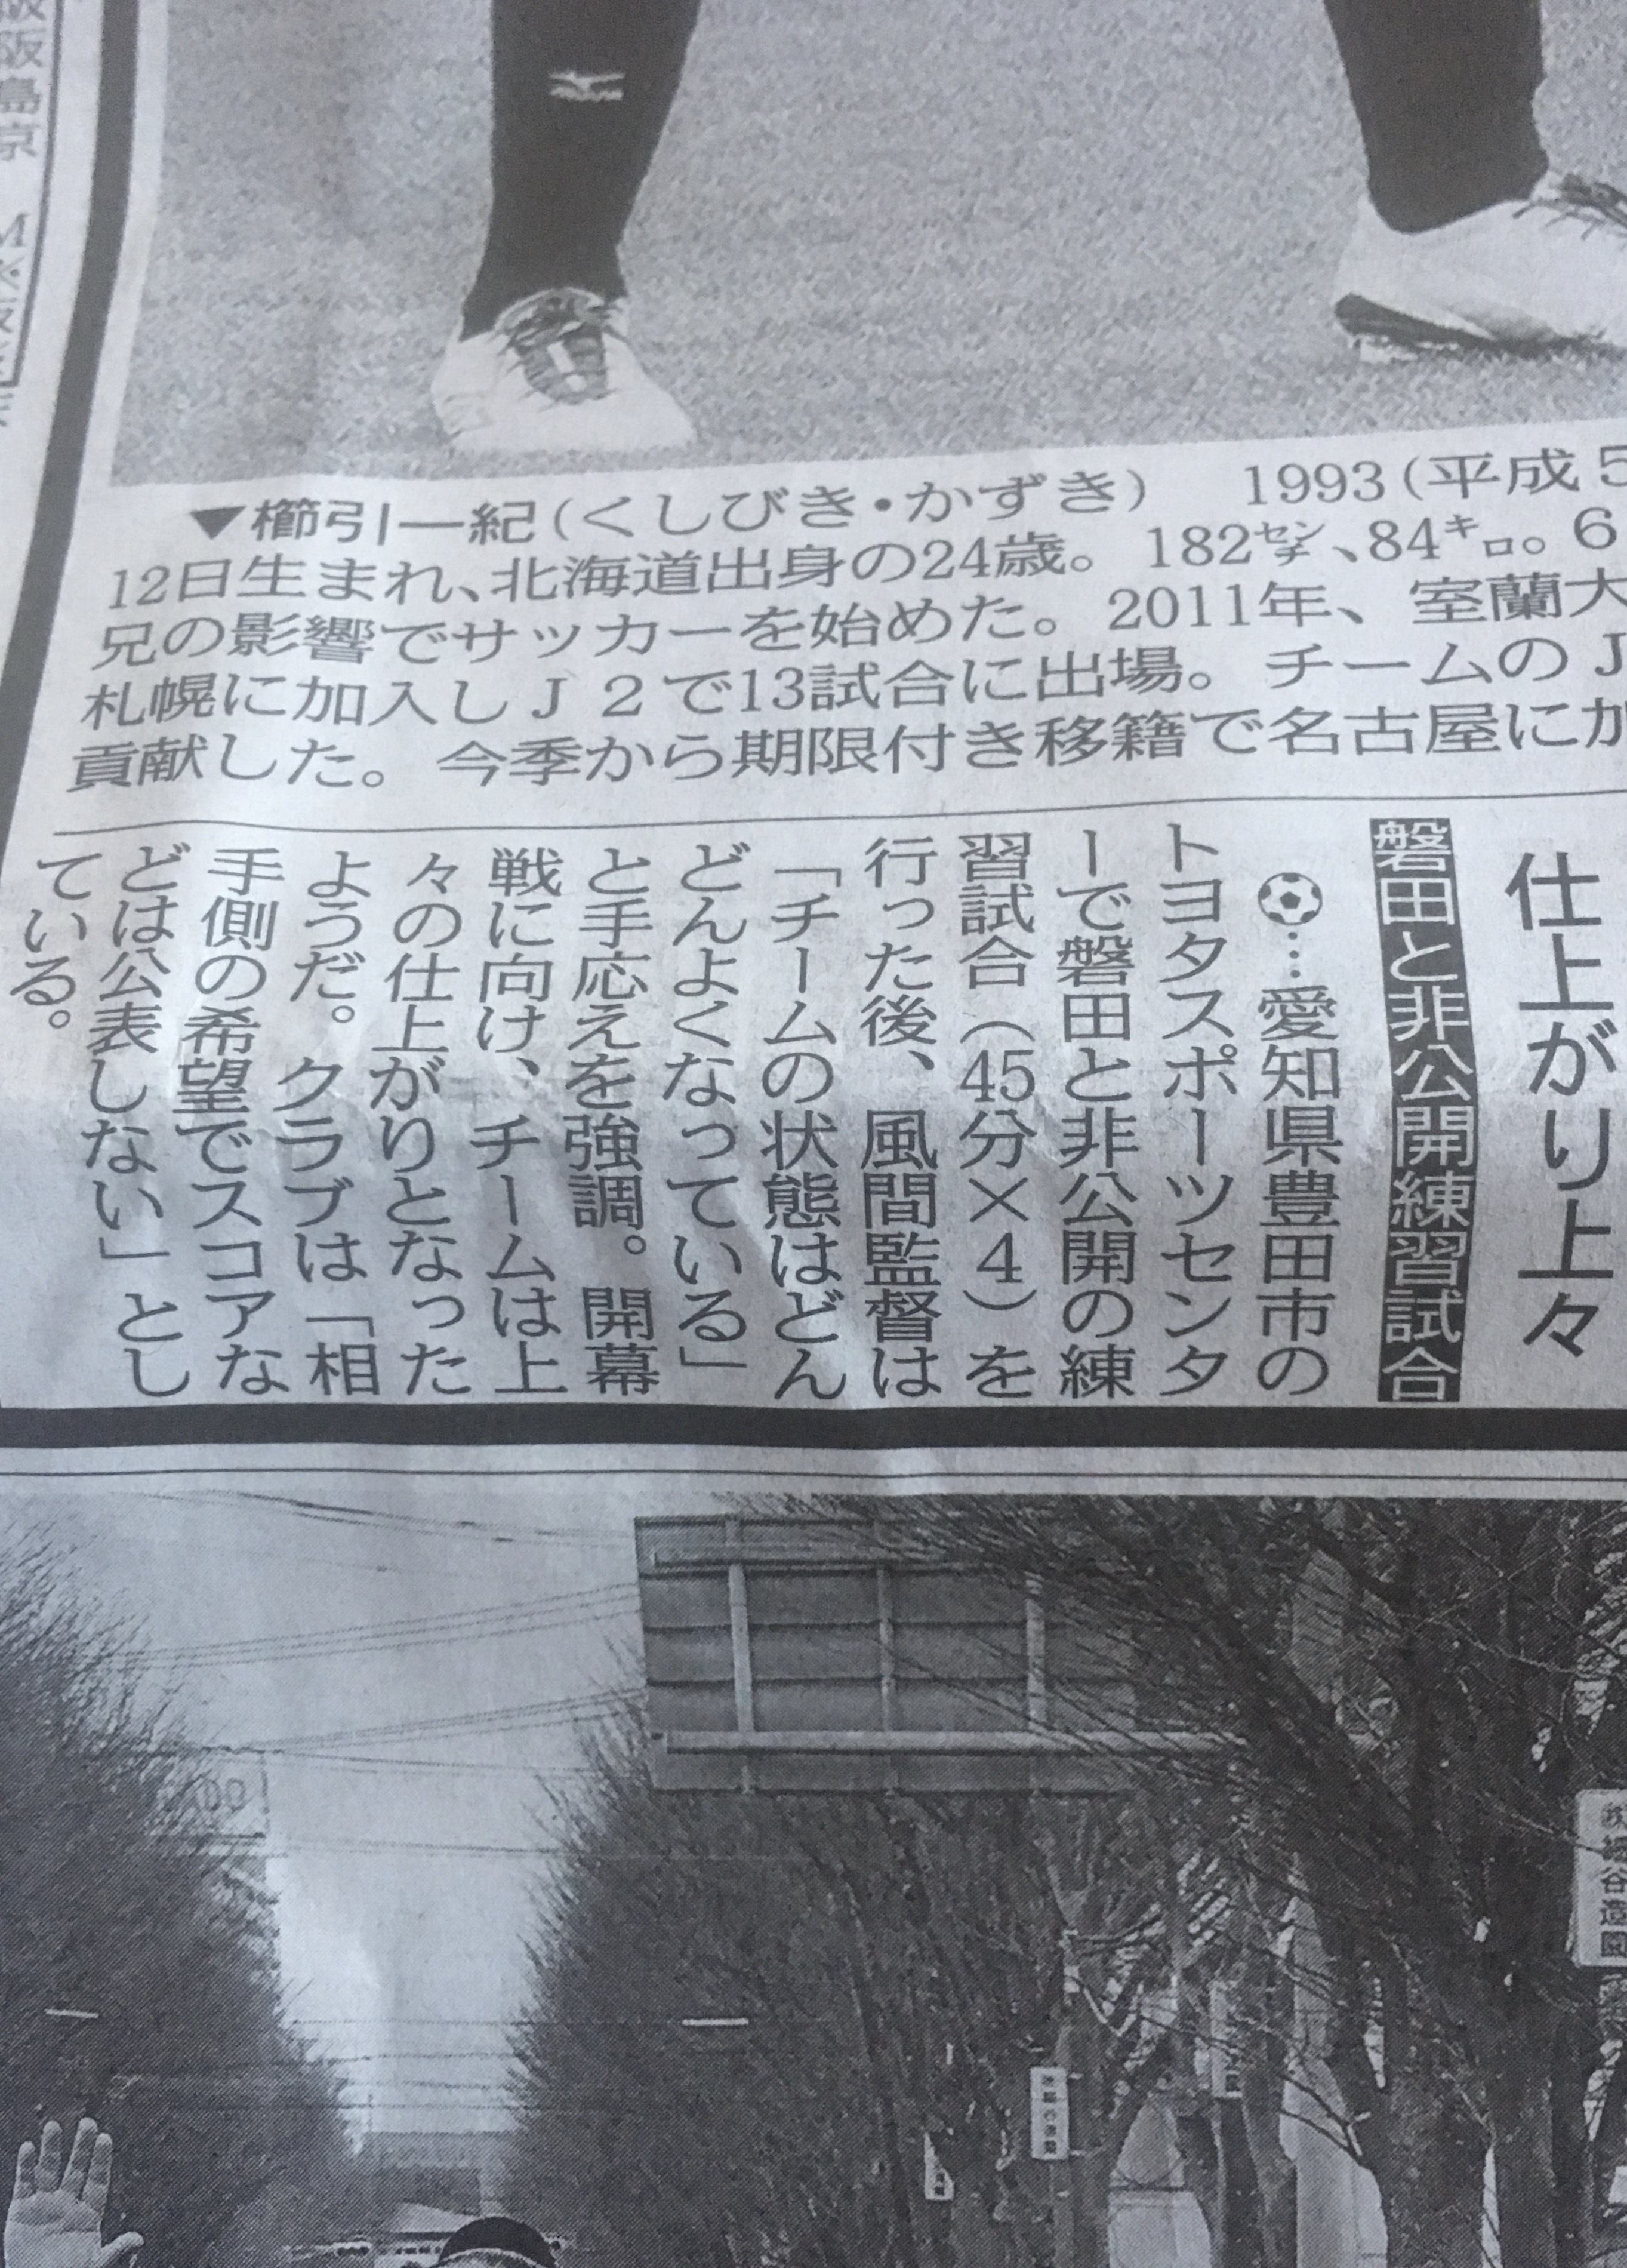 ▼櫛引一紀(くしびき・かずき) 1993(平成5
12日生まれ、北海道出身の24歳。182㌢、84㌔。6
兄の影響でサッカーを始めた。2011年、室蘭大
札幌に加入しJ2で13試合に出場。チームのJ
貢献した。今季から期限付き移籍で名古屋に加
仕上がり上々
磐田と非公開練習試合
⚽…愛知県豊田市の
トヨタスポーツセンタ
ーで磐田と非公開の練
習試合(45分×4)を
行った後、風間監督は
「チームの状態はどん
どんよくなっている」
と手応えを強調。開幕
戦に向け、チームは上
々の仕上がりとなった
ようだ。クラブは「相
手側の希望でスコアな
どは公表しない」とし
ている。